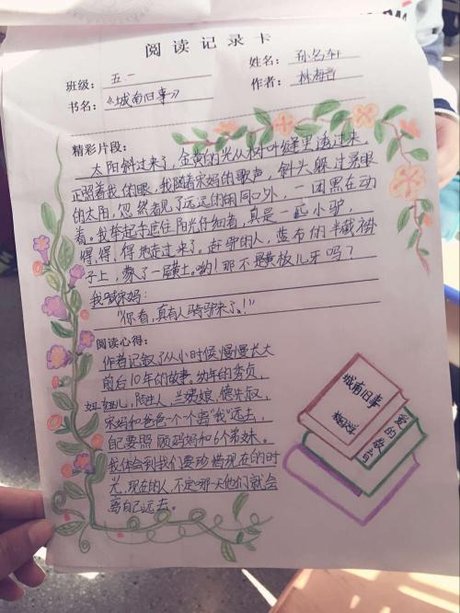 阅读记录卡
班级：五一
姓名：孙名轩
书名：《城南旧事》
作者：林海音
精彩片段：
太阳斜过来了，金黄的光从树叶缝里透过来，
正照着我的眼，我随着宋妈的歌声，斜头躲过晃眼
的太阳，忽然看见了远远的胡同口外，一团黑在动
着。我举起手遮住阳光仔细看，真是一匹小驴，
得、得、得地走过来了。赶驴的人，蓝布的半截褂
子上，蒙了一层黄土。哟！那不是黄板儿牙吗？
我喊宋妈：
“你看，真有人骑驴来了！”
阅读心得：
作者记叙了从小时候慢慢长大
前后10年的故事。幼年的秀贞，
妞妞儿，陌生人，兰姨娘，德先叔，
宋妈和爸爸一个个离“我”远去，
自己要照顾妈妈和6个弟妹。
我体会到我们要珍惜现在的时
光，现在的人，不定哪一天他们就会
离自己远去。
城南旧事
爱的教育